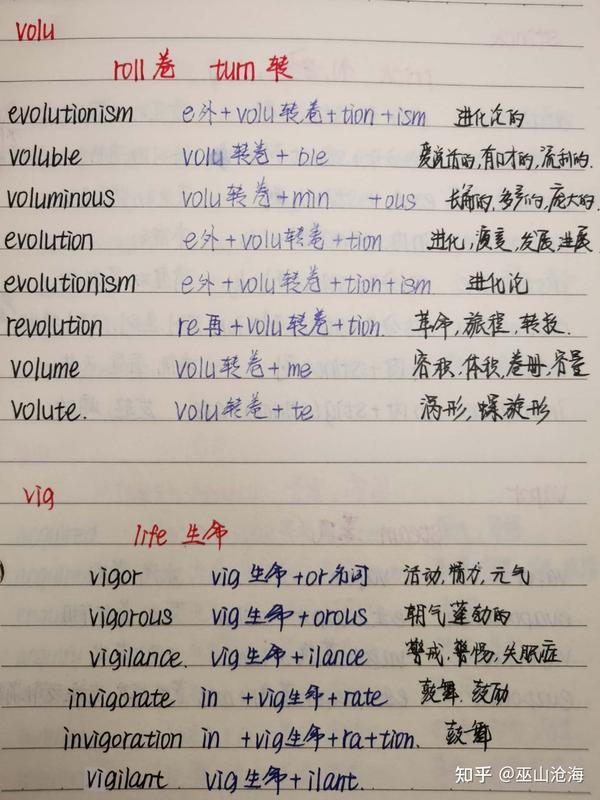 volu
roll 卷 turn 转
evolutionism e外+volu转卷+tion+ism 进化论的
voluble volu转卷+ble 爱说话的,有口才的,流利的.
voluminous volu转卷+min +ous 长篇的,多产的,庞大的.
evolution e外+volu转卷+tion 进化,演变,发展,进展
evolutionism e外+volu转卷+tion+ism. 进化论
revolution re再+volu转卷+tion. 革命,旅程,转投.
volume volu转卷+me 容积,体积,卷册,容量
volute. volu转卷+te 涡形,螺旋形
vig
life 生命
vigor vig生命+or名词 活动,精力,元气
vigorous vig生命+orous 朝气蓬勃的
vigilance. vig生命+ilance 警戒,警惕,失眠症
invigorate in +vig生命+rate 鼓舞.鼓励
invigoration in +vig生命+ra+tion. 鼓舞
vigilant vig生命+ilant.
知乎 @巫山沧海